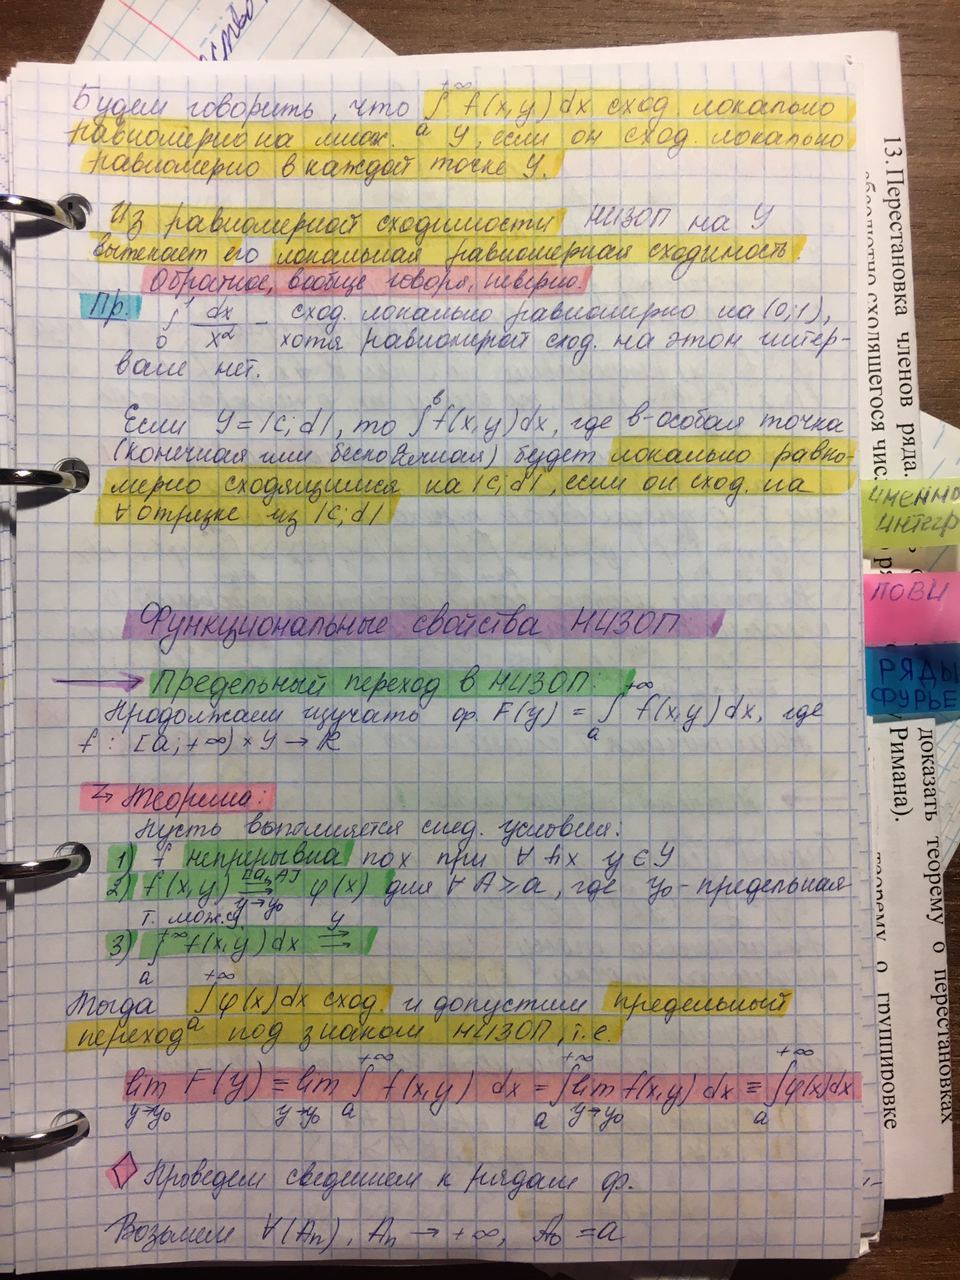 Будем говорить, что ∫ₐ^{+∞} f(x,y)dx сход локально
равномерно на множ. Y, если он сход. локально
равномерно в каждой точке Y.
Из равномерной сходимости НИЗОП на Y
вытекает его локальная равномерная сходимость
Обратное, вообще говоря, неверно.
Пр. ∫₀¹ dx/x^α - сход. локально равномерно на (0;1),
хотя равномерной сход. на этом интер-
вале нет.
Если Y=|c;d|, то ∫ᵇ f(x,y)dx, где b-особая точка
(конечная или бесконечная) будет локально равно-
мерно сходящимся на |c;d|, если он сход. на
∀ отрезке из |c;d|
Функциональные свойства НИЗОП
Предельный переход в НИЗОП:
Продолжаем изучать ф. F(y) = ∫ₐ^{+∞} f(x,y)dx, где
f : [a;+∞) × Y → ℝ
Теорема:
Пусть выполняется след. условия:
1) f непрерывна по x при ∀ fix y ∈ Y
2) f(x,y) ⇉^{[a,A]}_{y→y₀} φ(x) для ∀ A ≥ a, где y₀ - предельная
т. мож. Y
3) ∫ₐ^{+∞} f(x,y)dx ⇉^Y
Тогда ∫ₐ^{+∞} φ(x)dx сход. и допустим предельный
переход под знаком НИЗОП, т.е.
lim_{y→y₀} F(y) ≡ lim_{y→y₀} ∫ₐ^{+∞} f(x,y) dx = ∫ₐ^{+∞} lim_{y→y₀} f(x,y) dx ≡ ∫ₐ^{+∞} φ(x)dx
Проведем сведением к рядам ф.
Возьмем ∀(Aₙ), Aₙ → +∞, A₀ = a
13. Перестановка членов ряда.
абсолютно сходящегося чис.
доказать теорему о перестановках
Римана).
теорему о группировке
интегр
ПОВИ
РЯДЫ
ФУРЬЕ